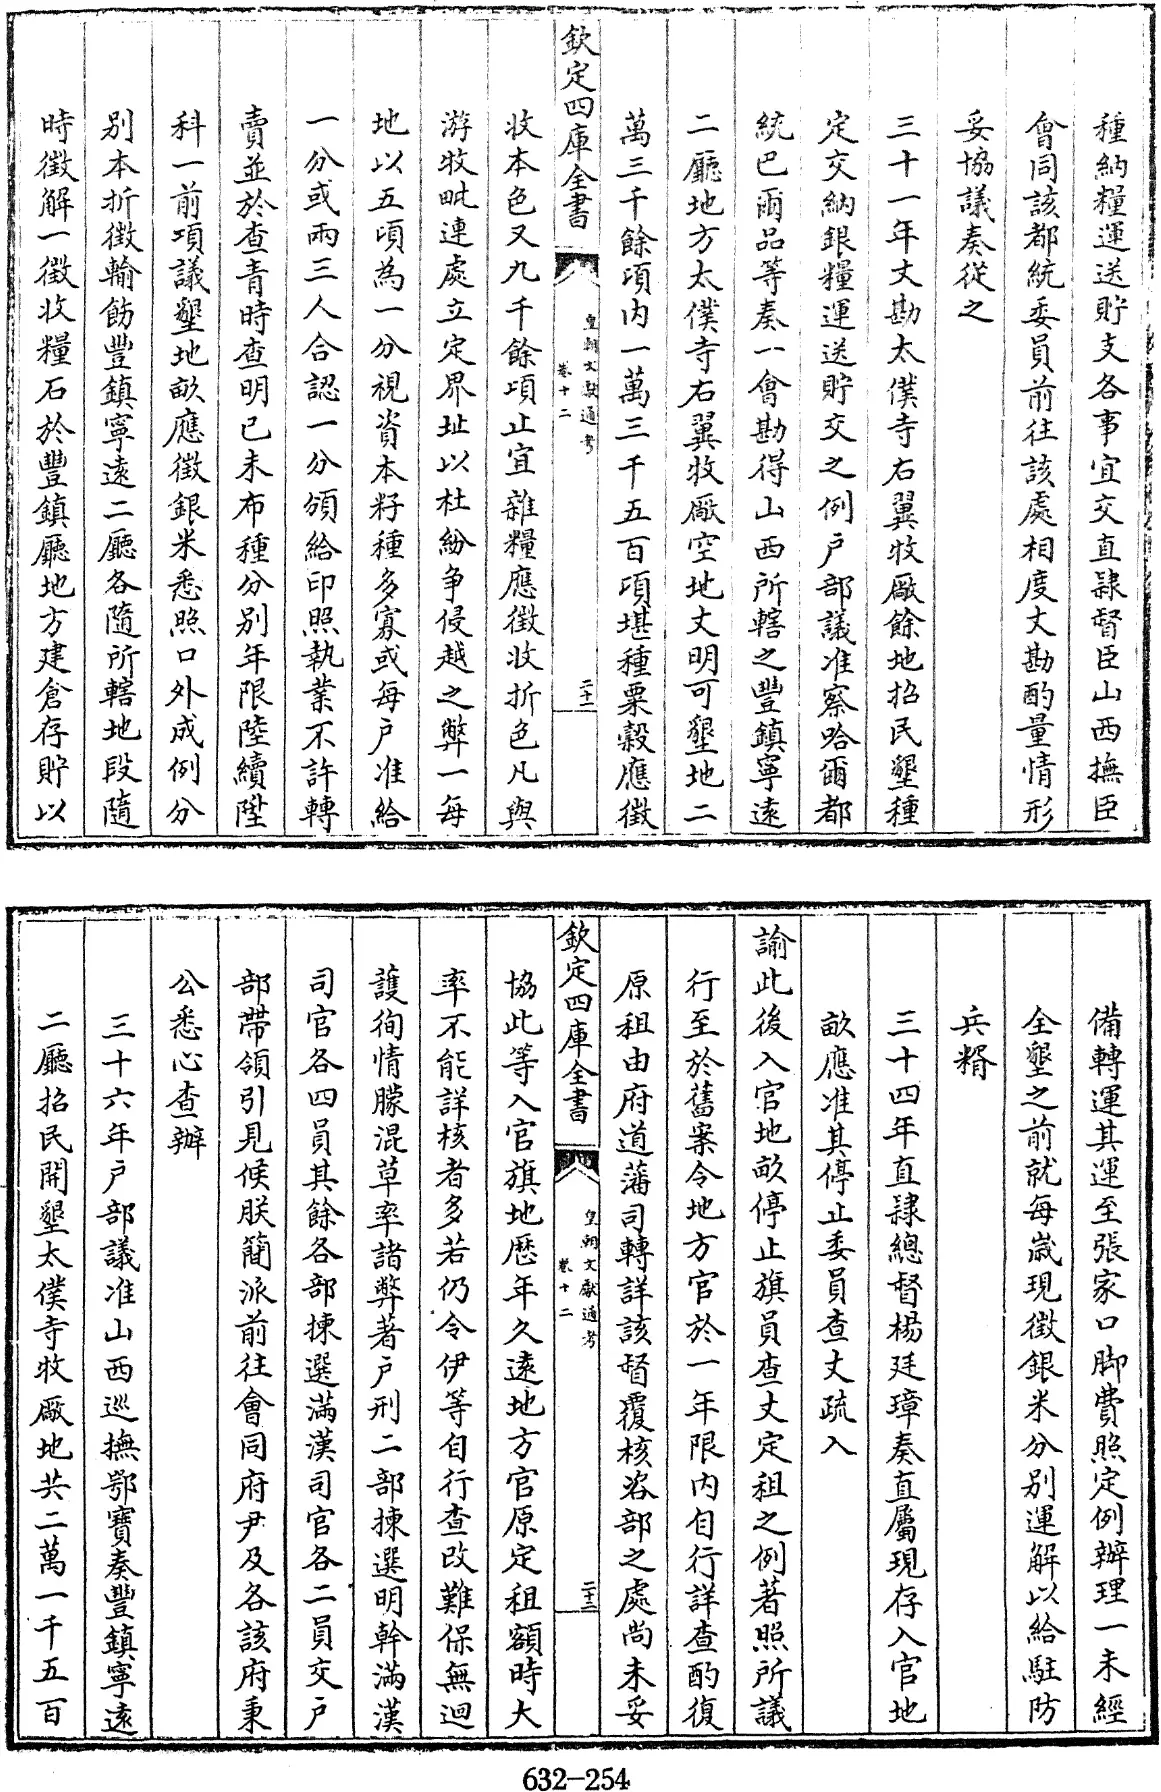 種納糧運送貯支各事宜交直隸督臣山西撫臣
會同該都統委員前往該處相度丈勘酌量情形
妥協議奏從之
三十一年丈勘太僕寺右翼牧廠餘地招民墾種
定交納銀糧運送貯交之例戶部議准察哈爾都
統巴爾品等奏一會勘得山西所轄之豐鎮寧遠
二廳地方太僕寺右翼牧廠空地丈明可墾地二
萬三千餘頃内一萬三千五百頃堪種粟穀應徵
欽定四庫全書
皇朝文獻通考
卷十二
二十一
收本色又九千餘頃止宜雜糧應徵收折色凡與
游牧毗連處立定界址以杜紛争侵越之弊一每
地以五頃為一分視資本籽種多寡或每戶准給
一分或兩三人合認一分頒給印照執業不許轉
賣並於查青時查明已未布種分別年限陸續陞
科一前項議墾地畝應徵銀米悉照口外成例分
別本折徵輸飭豐鎮寧遠二廳各隨所轄地段隨
時徵解一徵收糧石於豐鎮廳地方建倉存貯以
備轉運其運至張家口脚費照定例辦理一未經
全墾之前就每歲現徵銀米分別運解以給駐防
兵糈
三十四年直隸總督楊廷璋奏直屬現存入官地
畝應准其停止委員查丈疏入
諭此後入官地畝停止旗員查丈定租之例著照所議
行至於舊案令地方官於一年限内自行詳查酌復
原租由府道藩司轉詳該督覆核咨部之處尚未妥
欽定四庫全書
皇朝文獻通考
卷十二
二十二
協此等入官旗地歷年久遠地方官原定租額時大
率不能詳核者多若仍令伊等自行查改難保無迴
護徇情朦混草率諸弊著戶刑二部揀選明幹滿漢
司官各四員其餘各部揀選滿漢司官各二員交戶
部帶領引見候朕簡派前往會同府尹及各該府秉
公悉心查辦
三十六年戶部議准山西巡撫鄂寶奏豐鎮寧遠
二廳招民開墾太僕寺牧廠地共二萬一千五百
632-254